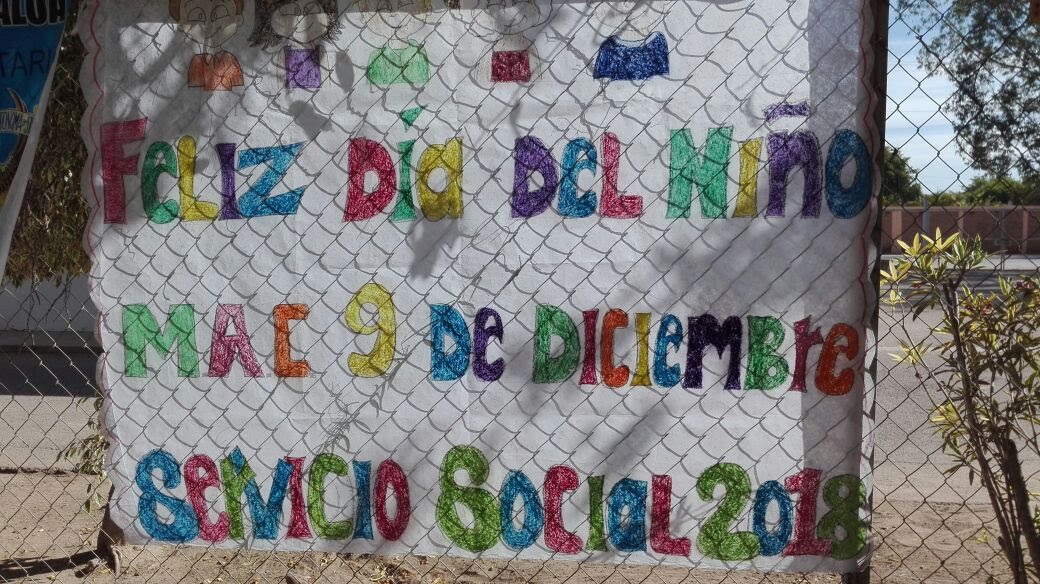 Feliz Día del Niño
MAC 9 de Diciembre
Servicio Social 2018